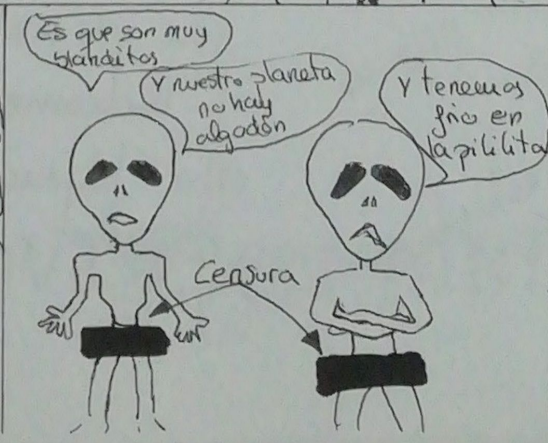 Es que son muy
blanditos
Y nuestro planeta
no hay
algodón
Y tenemos
frio en
la pililita
Censura